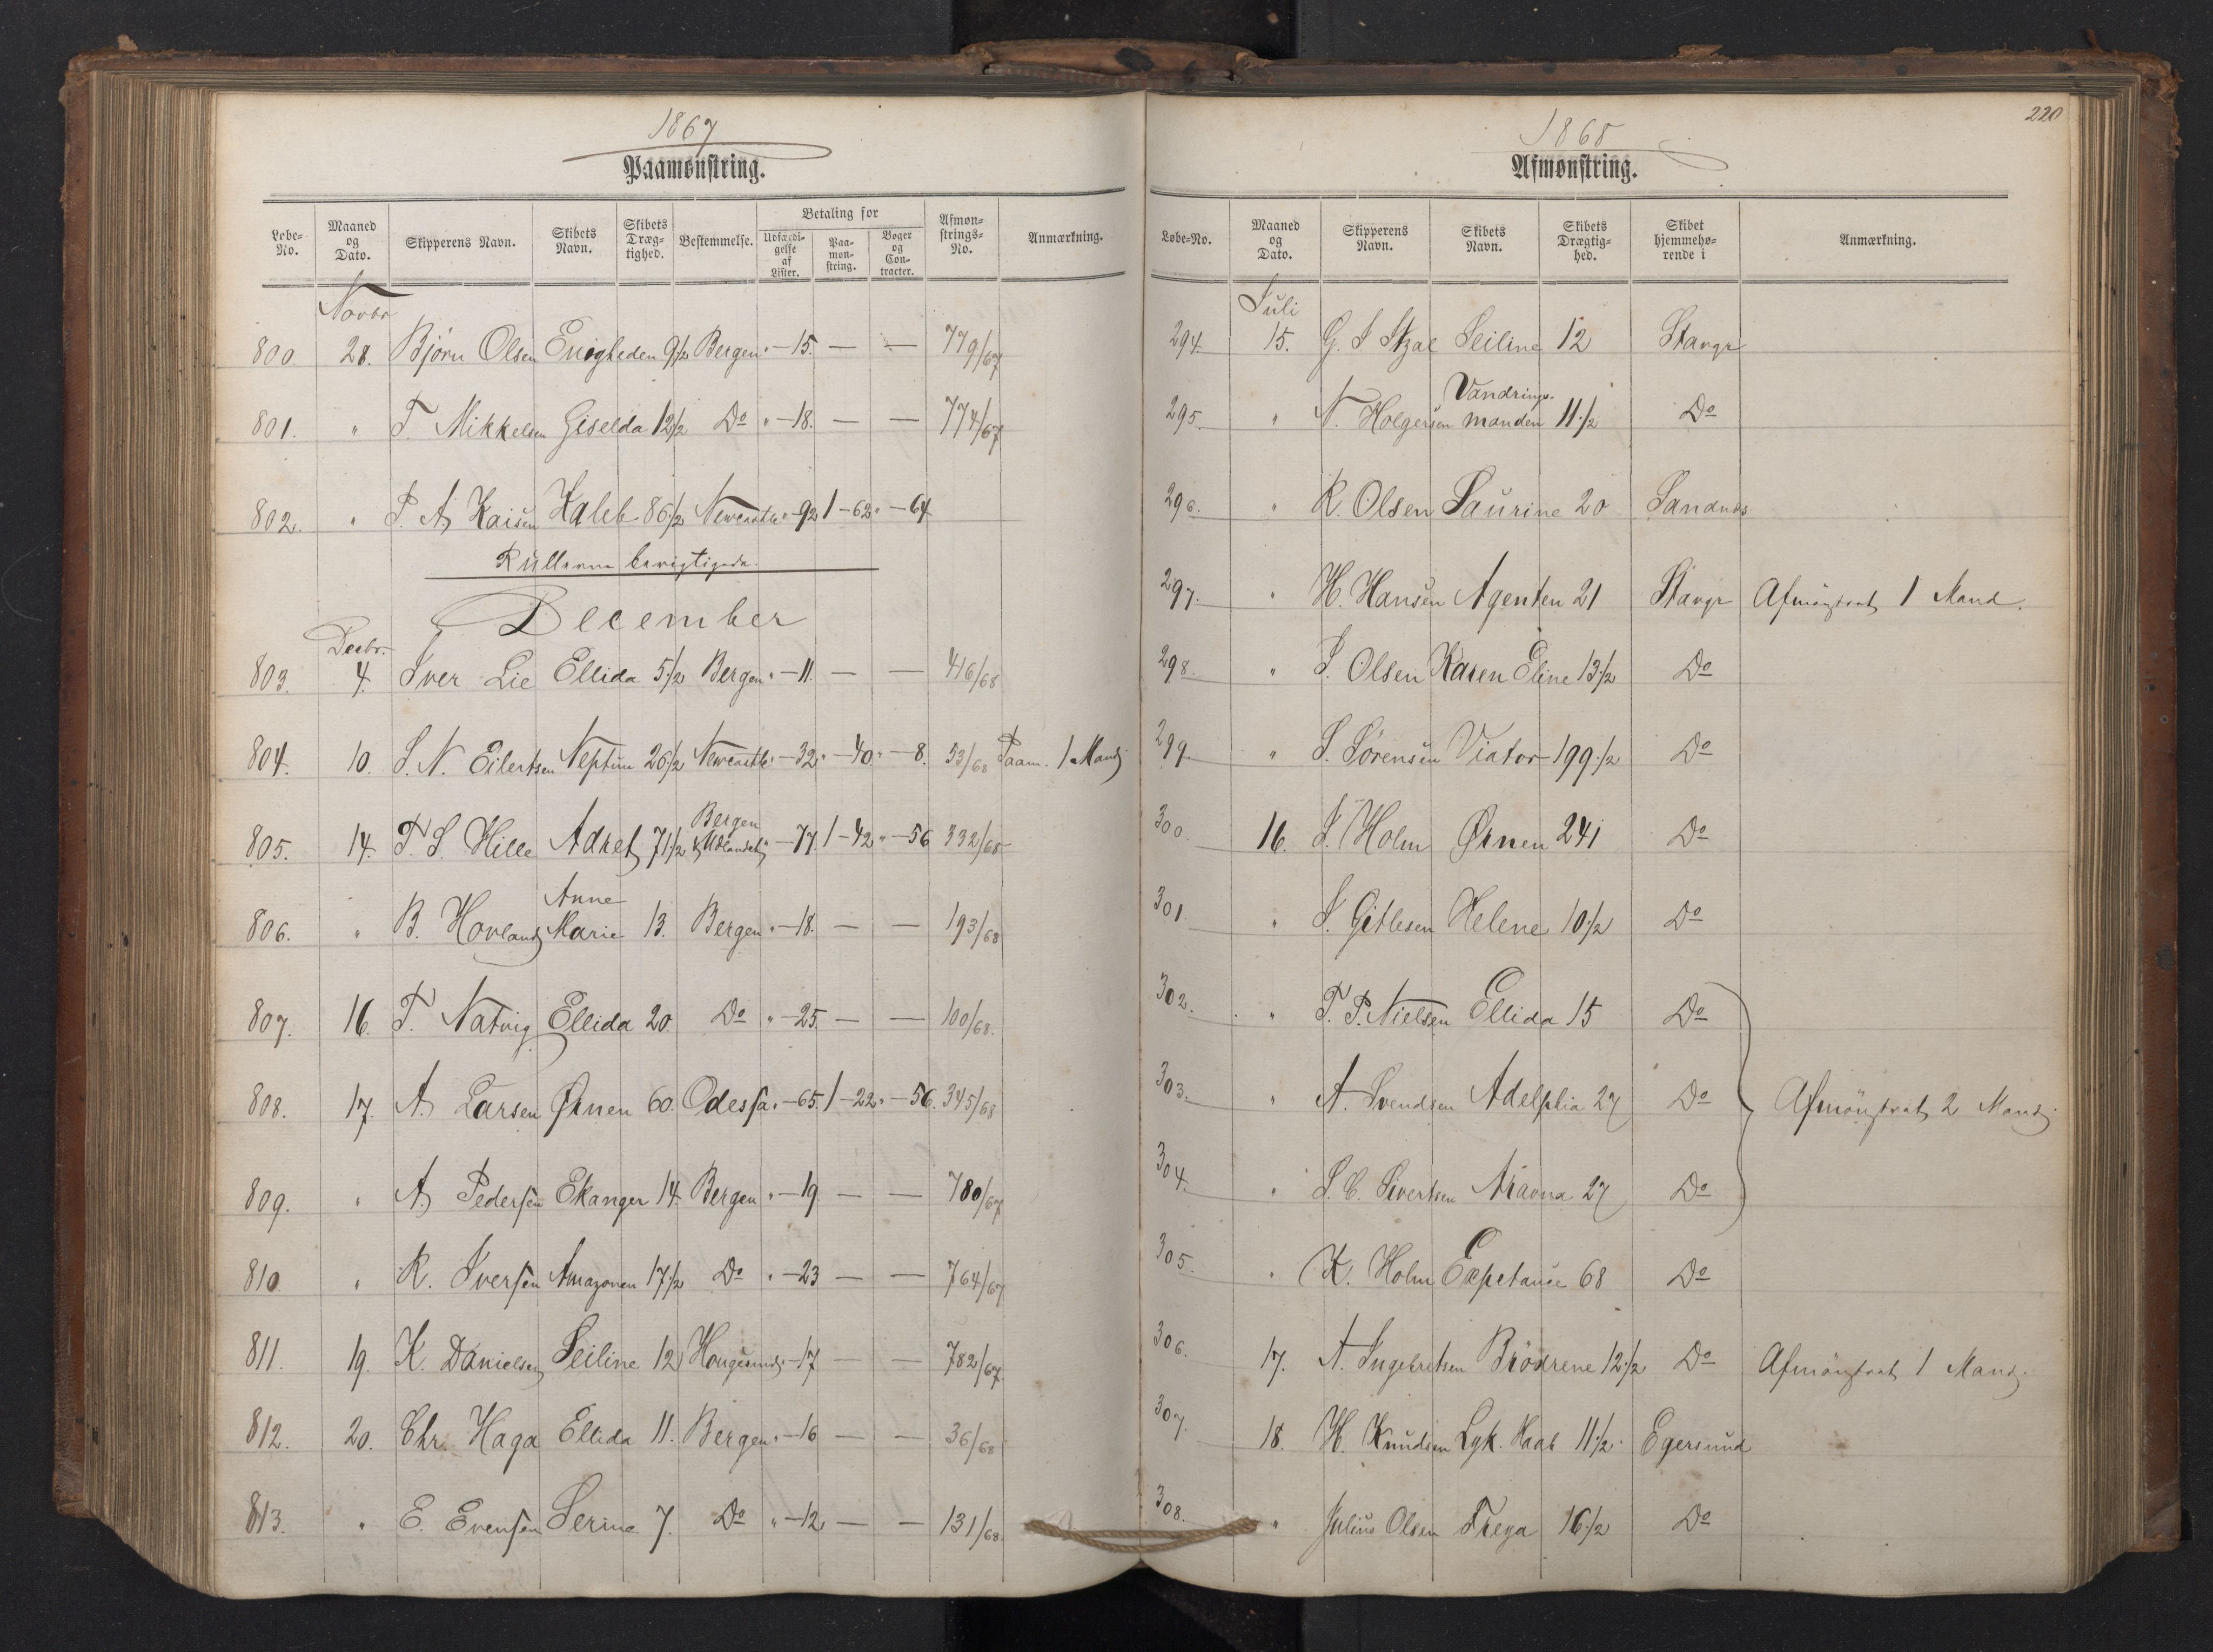 1867
Paamønstring.
Løbe-No. Maaned og Dato. Skipperens Navn. Skibets Navn. Skibets Dræg-tighed. Bestemmelse. Betaling for Udfærdi-gelse af Lister. Paa-møn-string. Bøger og Con-tracter. Afmøn-strings-No. Anmærkning.
Novbr
800. 28. Bjørn Olsen Enigheden 9½ Bergen " — 15. — — 779/67
801. " T. Mikkelsen Giselda 12½ Do " — 18. — — 774/67
802. " P. A. Kaisen Kaleb 86½ Newcastle " — 92 1 — 62 " — 64
Rullerne berigtigede.
December
Decbr.
803. 4. Iver Lie Ellida 5½ Bergen " — 11. — — 416/68
804. 10. S. N. Eilertsen Neptun 26½ Newcastle " — 32 " — 40 " — 8. 53/68 Paam. 1 Mand
805. 14. T. S. Hille Adret 71½ Bergen & Udlandet " — 77. 1 — 42 " — 56 332/68
806. " B. Hovland Anne Marie 13. Bergen " — 18. — — 193/68
807. 16. T. Natvig Ellida 20. Do " — 25. — — 100/68.
808. 17. A. Larsen Ørnen 60. Odessa " — 65. 1 — 22 " — 56. 345/68
809. " A. Pedersen Ekanger 14. Bergen " — 19. — — 780/67
810 " R. Iversen Amazonen 17½ Do " — 23 — — 764/67
811. 19. K. Danielsen Seiline 12 Hougesund " — 17 — — 782/67
812. 20. Chr. Haga Ellida 11. Bergen " — 16 — — 36/68
813. " E. Evensen Serine 7. Do " — 12 — — 131/68.
220
1868
Afmønstring.
Løbe-No. Maaned og Dato. Skipperens Navn. Skibets Navn. Skibets Drægtig-hed. Skibet hjemmehø-rende i Anmærkning.
Juli
294. 15. G. S Seiline 12 Stavgr
295. " N. Holgersen Vandrings-manden 11½ Do
296. " R. Olsen Laurine 20 Sandnes
297. " H. Hansen Agenten 21 Stavgr Afmönstret 1 Mand.
298. " S. Olsen Karen Eline 13½ Do
299. " S. Sörensen Viator 199½ Do
300. 16. J. Holm Ørnen 241 Do
301. " S. Gitlesen Helene 10½ Do
302. " T. P. Nielsen Ellida 15 Do
303. " A. Svendsen Adelphia 27 Do Afmönstret 2 Mand.
304. " S. C. Sivertsen 27 Do
305. " K. Holm Expetance 68 Do
306. 17. A. Ingebretsen Brödrene 12½ Do Afmönstret 1 Mand.
307. 18. H. Knudsen Lyk. Haab 11½ Egersund
308. " Julius Olsen Freya 16½ Do